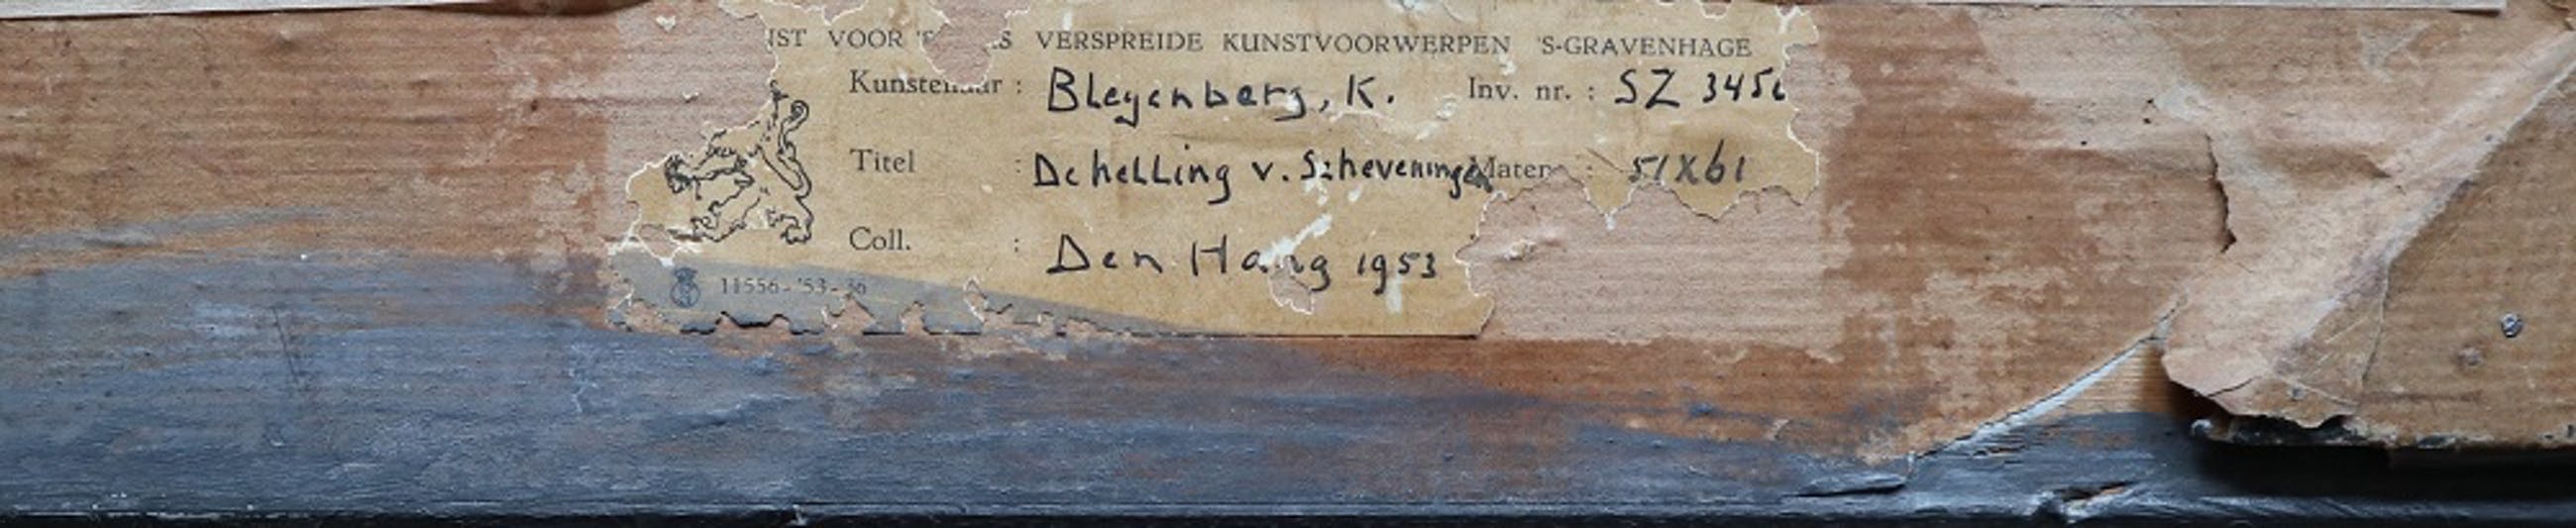 VOOR VERSPREIDE KUNSTVOORWERPEN 'S-GRAVENHAGE
Kunstenaar : Bleyenberg, K. Inv. nr. : SZ 3456
Titel : De helling v. Scheveningen Maten : 51X61
Coll. : Den Haag 1953
11556-'53-36